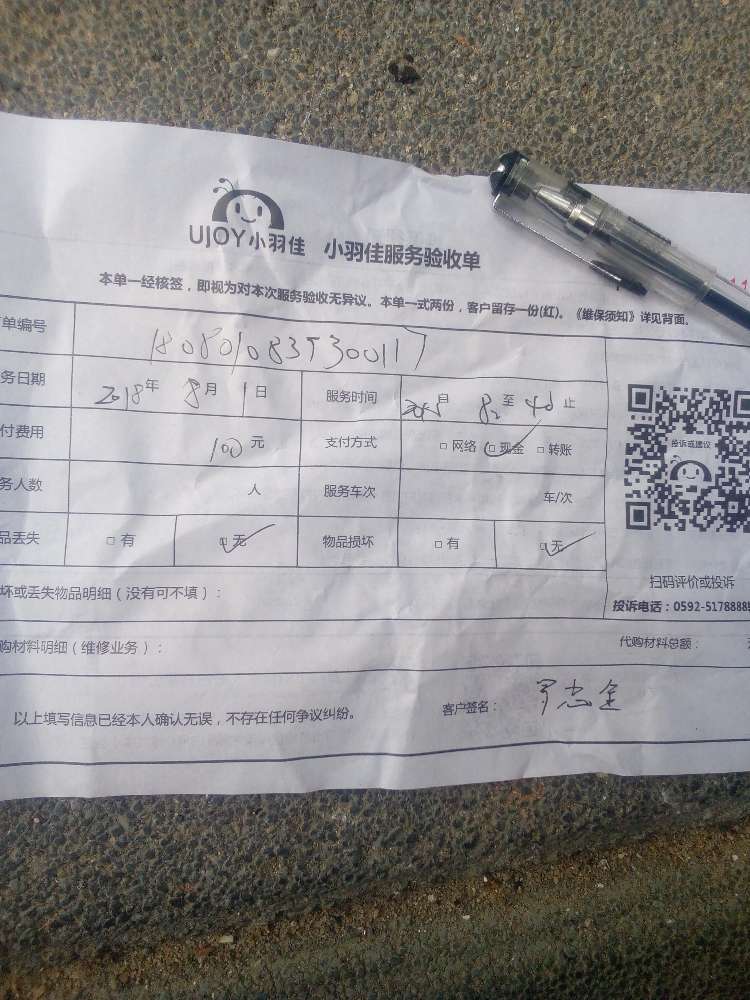 UJOY小羽佳 小羽佳服务验收单
本单一经核签，即视为对本次服务验收无异议。本单一式两份，客户留存一份(红)。《维保须知》详见背面。
单编号 1808010835300117
务日期 2018年 8月 1日 服务时间 自 8 至 止
付费用 100元 支付方式 □网络 □现金 □转账
务人数 人 服务车次 车/次
品丢失 □有 □无 物品损坏 □有 □无
投诉或建议
扫码评价或投诉
投诉电话：0592-5178888
坏或丢失物品明细（没有可不填）：
购材料明细（维修业务）： 代购材料总额：
以上填写信息已经本人确认无误，不存在任何争议纠纷。 客户签名： 罗志金